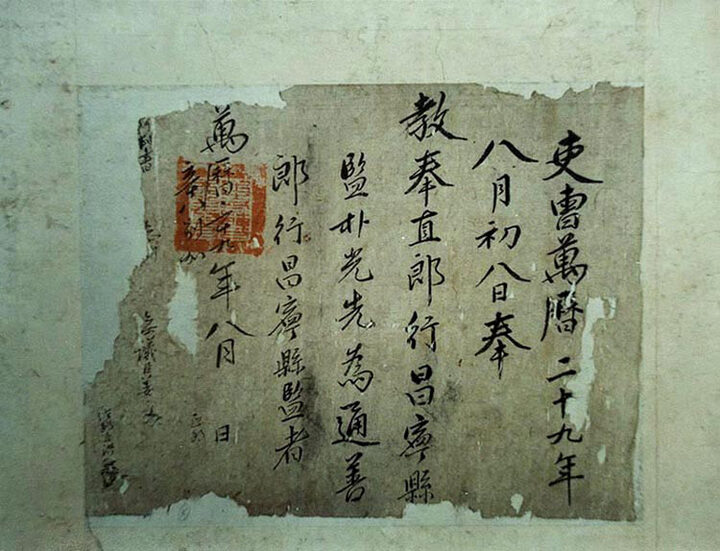 吏曺萬曆二十九年
八月初八日奉
教奉直郎行昌寧縣
監朴光先為通善
郎行昌寧縣監者
萬曆二十九年八月 日